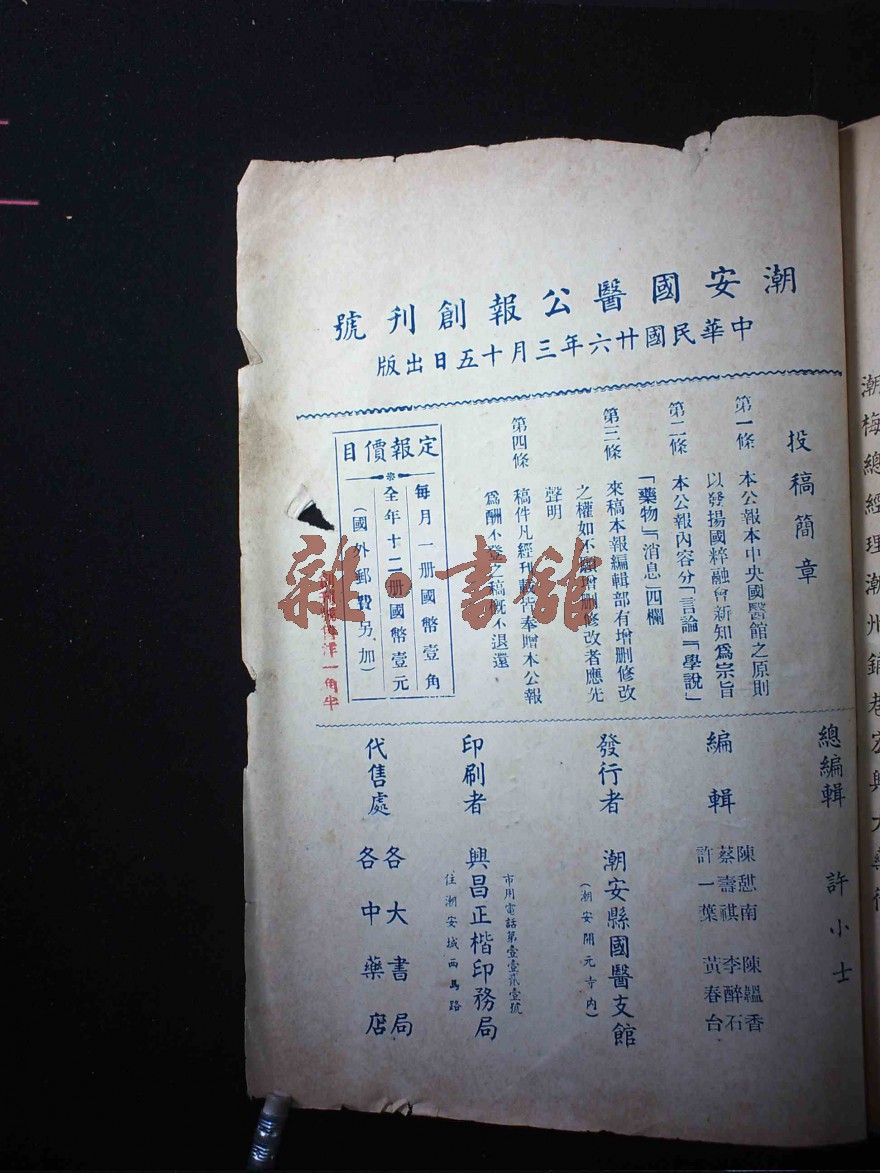 潮安國醫公報創刊號
中華民國廿六年三月十五日出版
投稿簡章
第一條 本公報本中央國醫館之原則
以發揚國粹融會新知爲宗旨
第二條 本公報內容分「言論」「學說」
「藥物」「消息」四欄
第三條 來稿本報編輯部有增删修改
之權如不願增删修改者應先
聲明
第四條 稿件凡經刊載皆奉贈本公報
爲酬不登之稿概不退還
定報價目
每月一册國幣壹角
全年十二册國幣壹元
(國外郵費另加)
售洋一角半
總編輯 許小士
編輯
陳愻南 陳韞香
蔡壽祺 李醉石
許一葉 黃春台
發行者 潮安縣國醫支館
(潮安開元寺內)
印刷者 興昌正楷印務局
市用電話第壹壹貳壹號
住潮安城西馬路
代售處
各大書局
各中藥店
雜·書館
潮梅總經理潮州鋪巷宏興大藥行